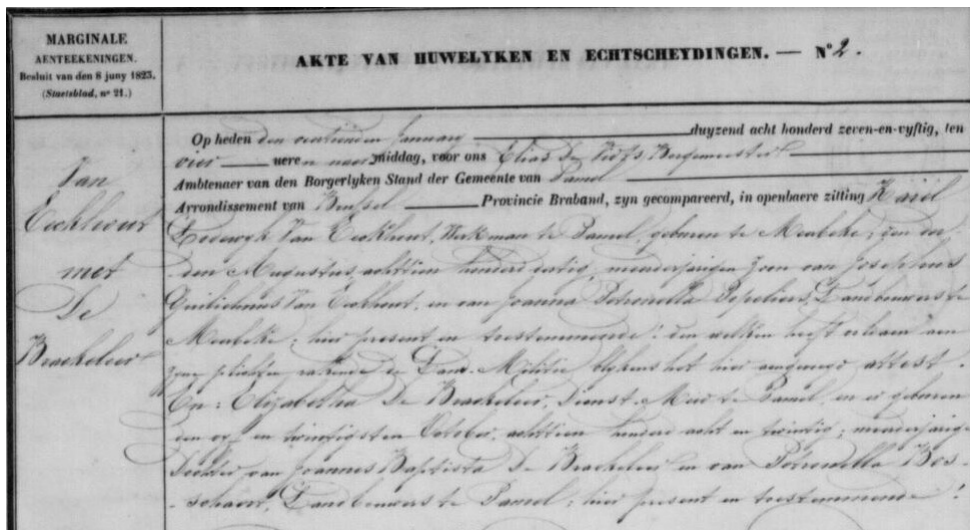 MARGINALE
AENTEEKENINGEN.
Besluit van den 8 juny 1823.
(Staetsblad, nº 21.)
AKTE VAN HUWELYKEN EN ECHTSCHEYDINGEN. — Nº 2.
Van
Eeckhout
met
De
Brackeleer
Op heden den January duyzend acht honderd zeven-en-vyftig, ten
vier ueren naermiddag, voor ons Elias De Borgemeester
Ambtenaer van den Borgerlyken Stand der Gemeente van Pamel
Arrondissement van Brussel Provincie Braband, zyn gecompareerd, in openbaere zitting Karel
Lodewyk Van Eeckhout, Werkman te Pamel, geboren te Meerbeke, den der-
den Augustus, achttien honderd dertig, meerderjarigen Zoon van Josephus
Guilielmus Van Eeckhout, en van Joanna Petronella Landbouwers te
Meerbeke; hier present en toestemmende; den welken heeft voldaen aen
zyne plichten rakende de Militie blykens het hier aengevoegd attest.
En: Elizabetha De Brackeleer, Dienst-Meid te Pamel, en er geboren
den en twintigsten October, achttien honderd acht en twintig; meerderjarige
Dochter van Joannes Baptista De Brackeleer en van Petronella Bos-
schaert, Landbouwers te Pamel; hier present en toestemmende!